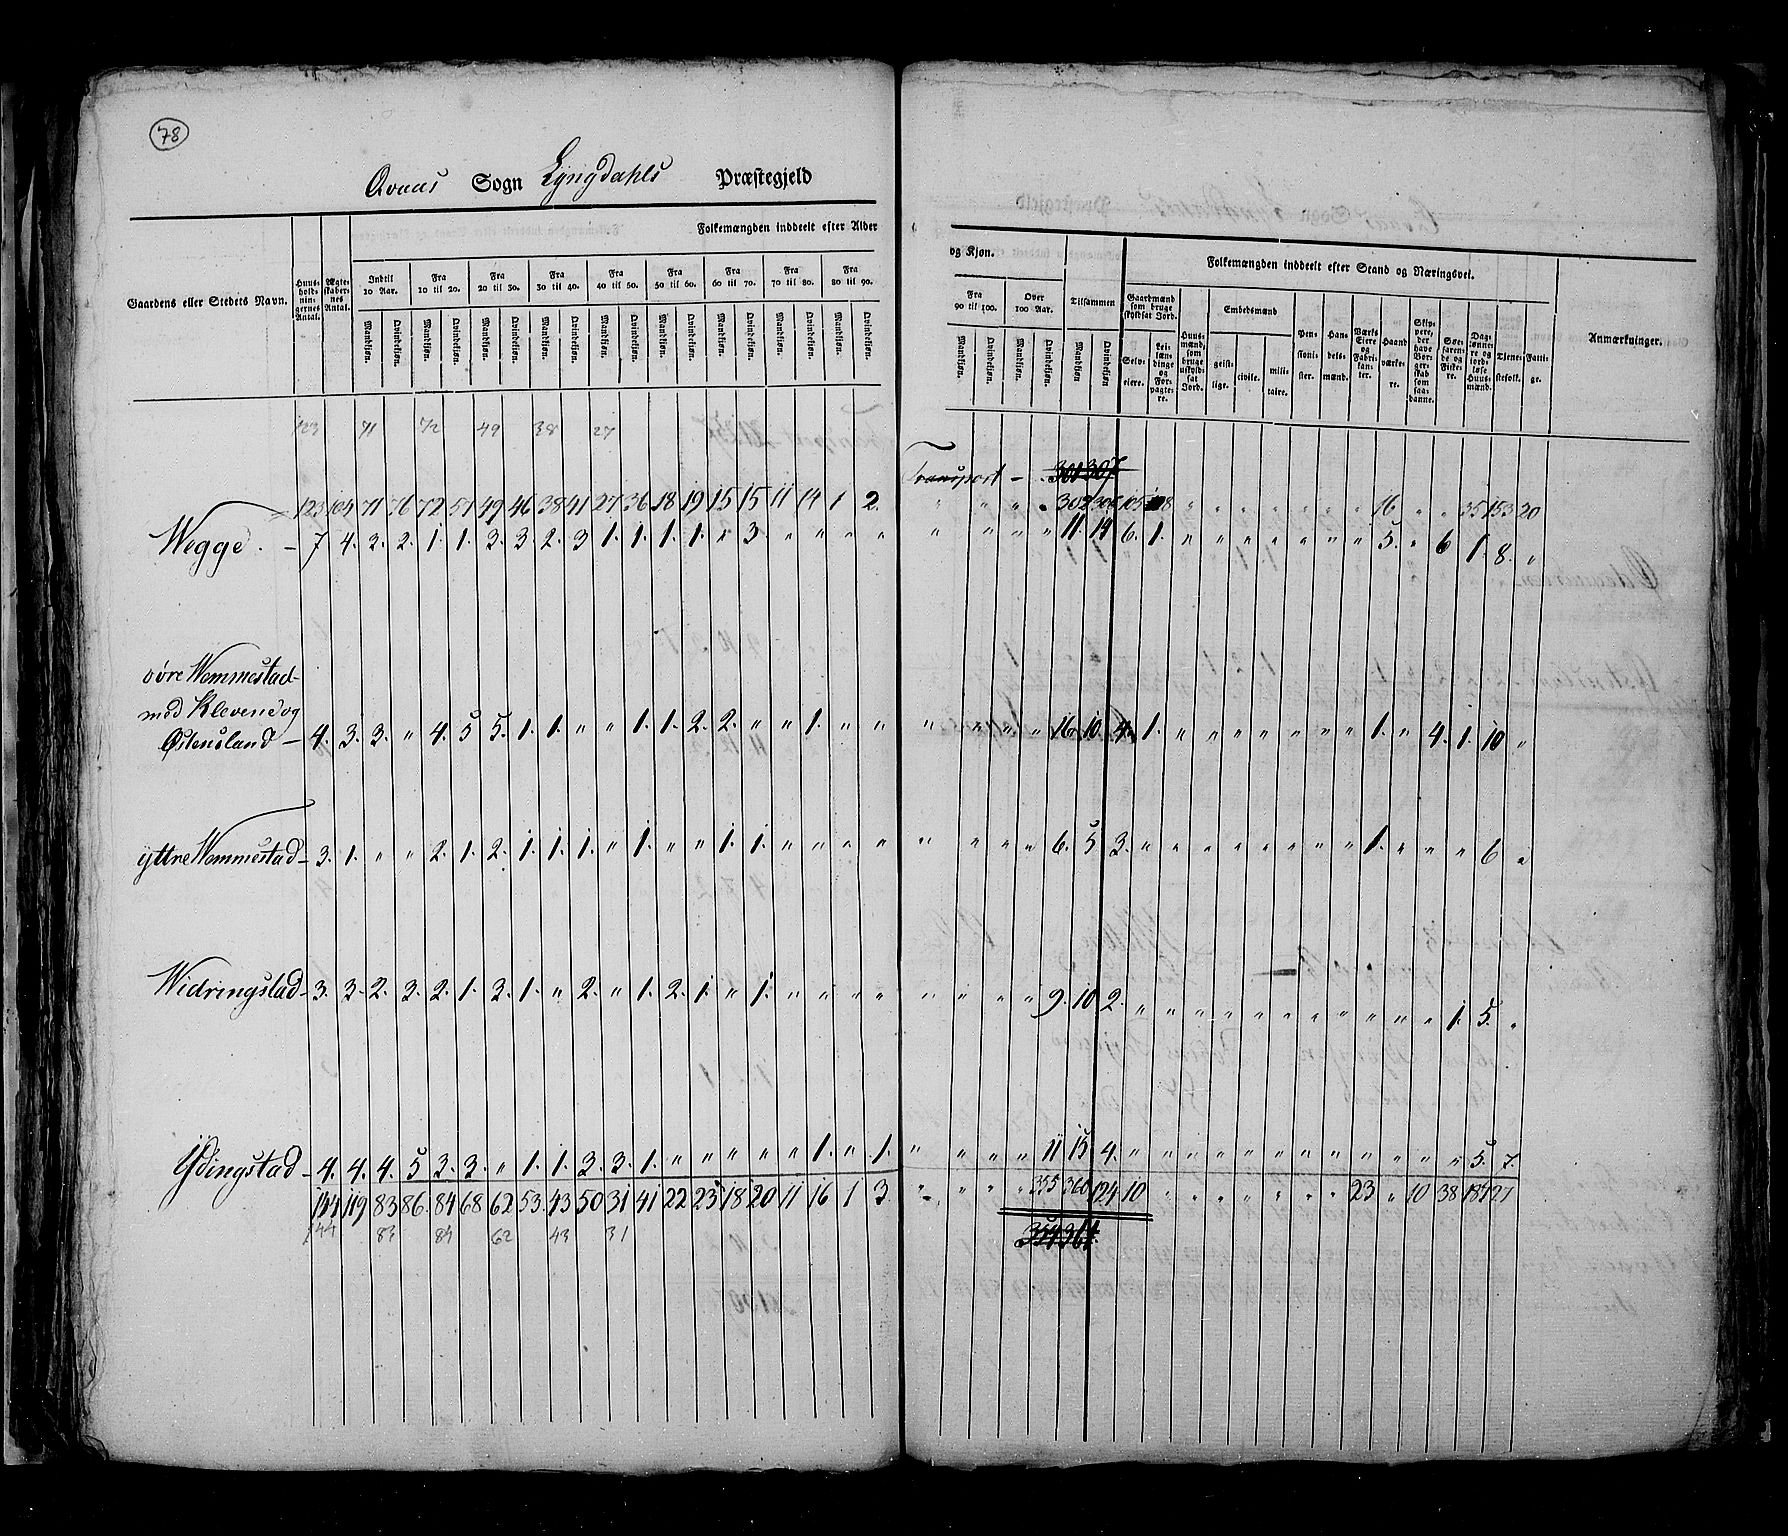 78
Qvaas Sogn Lyngdahls Præstegjeld
Gaardens eller Stedets Navn.
Huus-holdnin-gernes Antal.
Ægte-skaber-nes Antal.
Folkemængden inddeelt efter Alder og Kjøn.
Indtil 10 Aar.
Fra 10 til 20.
Fra 20 til 30.
Fra 30 til 40.
Fra 40 til 50.
Fra 50 til 60.
Fra 60 til 70.
Fra 70 til 80.
Fra 80 til 90.
Fra 90 til 100.
Over 100 Aar.
Tilsammen
Mandkjøn. Qvindekjøn.
Folkemængden inddeelt efter Stand og Næringsvei.
Gaardmænd som bruge skyldsat Jord.
Selv-eiere.
Lei-lændinge og For-pagtere.
Huus-mænd, som bruge uskyld-sat Jord.
Embedsmænd
geist-lige.
civile.
mili-taire.
Pen-sioni-ster.
Han-dels-mænd.
Værks Eiere og Fabri-kanter.
Haand-værke-re.
Skip-pere, der have Bor-ger-skab som saa-danne.
Sø-farende og Fiske-re.
Dag-lønne-re og jord-løse Huus-mænd.
Tjene-stefolk.
Fatti-ge.
Anmærkninger.
123 71 72 49 38 27
Transport - 301 307
123 104 71 76 72 57 49 46 38 41 27 36 18 19 15 15 11 14 1 2. " " " " 302 306 105 8 " " " " " " " 16 " " 35 153 20
Wegge. - 7 4. 3. 2. 1. 1. 3. 3. 2. 3 1. 1. 1. 1. " 3 " " " " " " " " 11. 14 6. 1. " " " " " " " 5. " 6 1. 8. "
øvre Wemmestad
med Klevene og
Østensland - 4. 3. 3. " 4. 5 5. 1. 1. " " 1. 1. 2. 2. " " 1. " " " " " " 16 10. 4. 1. " " " " " " " 1. " 4. 1. 10 "
yttre Wemmestad - 3. 1. " " 2. 1. 2. 1. 1. 1. " 1. " " 1. 1. " " " " " " " " 6. 5 3. " " " " " " " " 1. " " " 6 "
Widringstad - 3. 3. 2. 3. 2. 1. 3. 1. " 2. " 1. 2. 1. " 1. " " " " " " " " 9. 10 2. " " " " " " " " " " " 1. 5. "
Ydingstad - 4. 4. 4. 5 3. 3. " 1. 1. 3. 3. 1. " " " " " 1. " 1. " " " " 11 15 4. " " " " " " " " " " " " 5. 7.
144 119 83 86. 84 68 62 53. 43 50 31 41 22 23 18 20 11 16 1 3 " " " " 355 360 124 10 " " " " " " " 23 " 10 38 187 27
144 83 84 62 43 31
354 361.